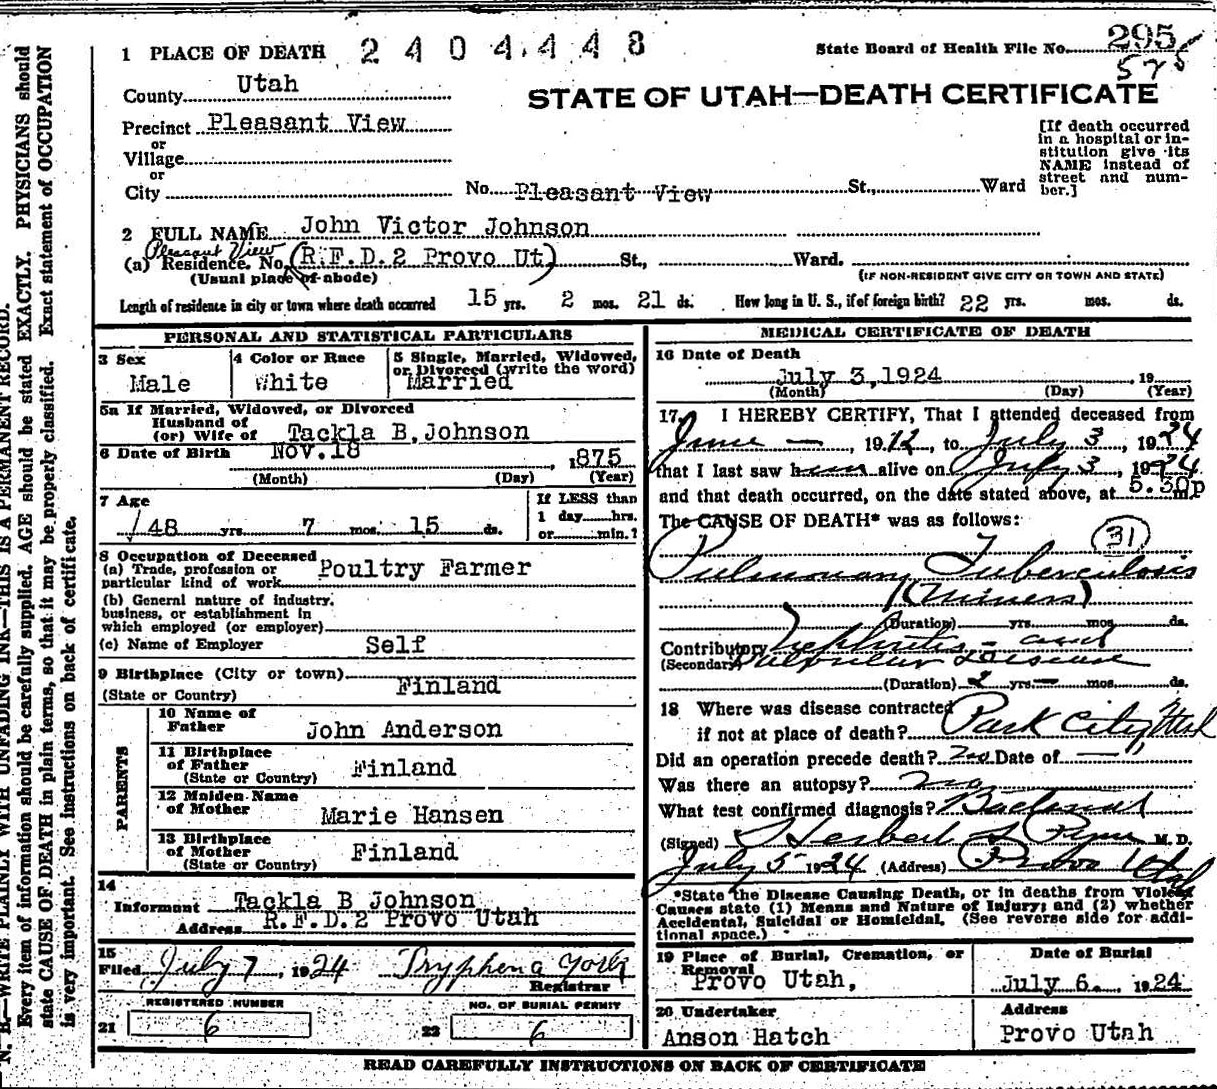 1 PLACE OF DEATH 2404448 State Board of Health File No. 295
575
County Utah
STATE OF UTAH—DEATH CERTIFICATE
Precinct Pleasant View
or
Village
or
City No. Pleasant View St., Ward
[If death occurred in a hospital or institution give its NAME instead of street and number.]
2 FULL NAME John Victor Johnson
Pleasant View
(a) Residence. No. (R.F.D.2 Provo Ut) St., Ward.
(Usual place of abode) (IF NON-RESIDENT GIVE CITY OR TOWN AND STATE)
Length of residence in city or town where death occurred 15 yrs. 2 mos. 21 ds. How long in U. S., if of foreign birth? 22 yrs. mos. ds.
PERSONAL AND STATISTICAL PARTICULARS
3 Sex Male
4 Color or Race White
5 Single, Married, Widowed, or Divorced (write the word) Married
5a If Married, Widowed, or Divorced
Husband of
(or) Wife of Tackla B.Johnson
6 Date of Birth Nov.18, 1875
(Month) (Day) (Year)
7 Age
48 yrs. 7 mos. 15 ds.
If LESS than
1 day......hrs.
or......min.?
8 Occupation of Deceased
(a) Trade, profession or
particular kind of work Poultry Farmer
(b) General nature of industry,
business, or establishment in
which employed (or employer)
(c) Name of Employer Self
9 Birthplace (City or town)
(State or Country) Finland
PARENTS
10 Name of
Father John Anderson
11 Birthplace
of Father Finland
(State or Country)
12 Maiden Name
of Mother Marie Hansen
13 Birthplace
of Mother Finland
(State or Country)
14
Informant Tackla B Johnson
Address R.F.D.2 Provo Utah
15
Filed July 7, 1924 Tryphena York
Registrar
REGISTERED NUMBER NO. OF BURIAL PERMIT
21 6 22 6
MEDICAL CERTIFICATE OF DEATH
16 Date of Death
July 3,1924, 19
(Month) (Day) (Year)
17. I HEREBY CERTIFY, That I attended deceased from
June —, 1912, to July 3, 1924
that I last saw him alive on July 3, 1924
and that death occurred, on the date stated above, at 5.30p m.
The CAUSE OF DEATH* was as follows:
(31)
Pulmonary Tuberculosis
(Miners)
(Duration) yrs. mos. ds.
Contributory Nephritis - and
(Secondary) Disease
(Duration) 2 yrs. — mos. ds.
18 Where was disease contracted
if not at place of death? Park City, Utah
Did an operation precede death? no Date of —
Was there an autopsy? no
What test confirmed diagnosis?
(Signed) Herbert S Pyne M. D.
July 5 1924 (Address) Provo Utah
*State the Disease Causing Death, or in deaths from Violent
Causes state (1) Means and Nature of Injury; and (2) whether
Accidental, Suicidal or Homicidal. (See reverse side for addi-
tional space.)
19 Place of Burial, Cremation, or
Removal
Provo Utah,
Date of Burial
July 6. 1924
20 Undertaker
Anson Hatch
Address
Provo Utah
READ CAREFULLY INSTRUCTIONS ON BACK OF CERTIFICATE
N. B.—WRITE PLAINLY WITH UNFADING INK—THIS IS A PERMANENT RECORD.
Every item of information should be carefully supplied. AGE should be stated EXACTLY. PHYSICIANS should
state CAUSE OF DEATH in plain terms, so that it may be properly classified. Exact statement of OCCUPATION
is very important. See instructions on back of certificate.